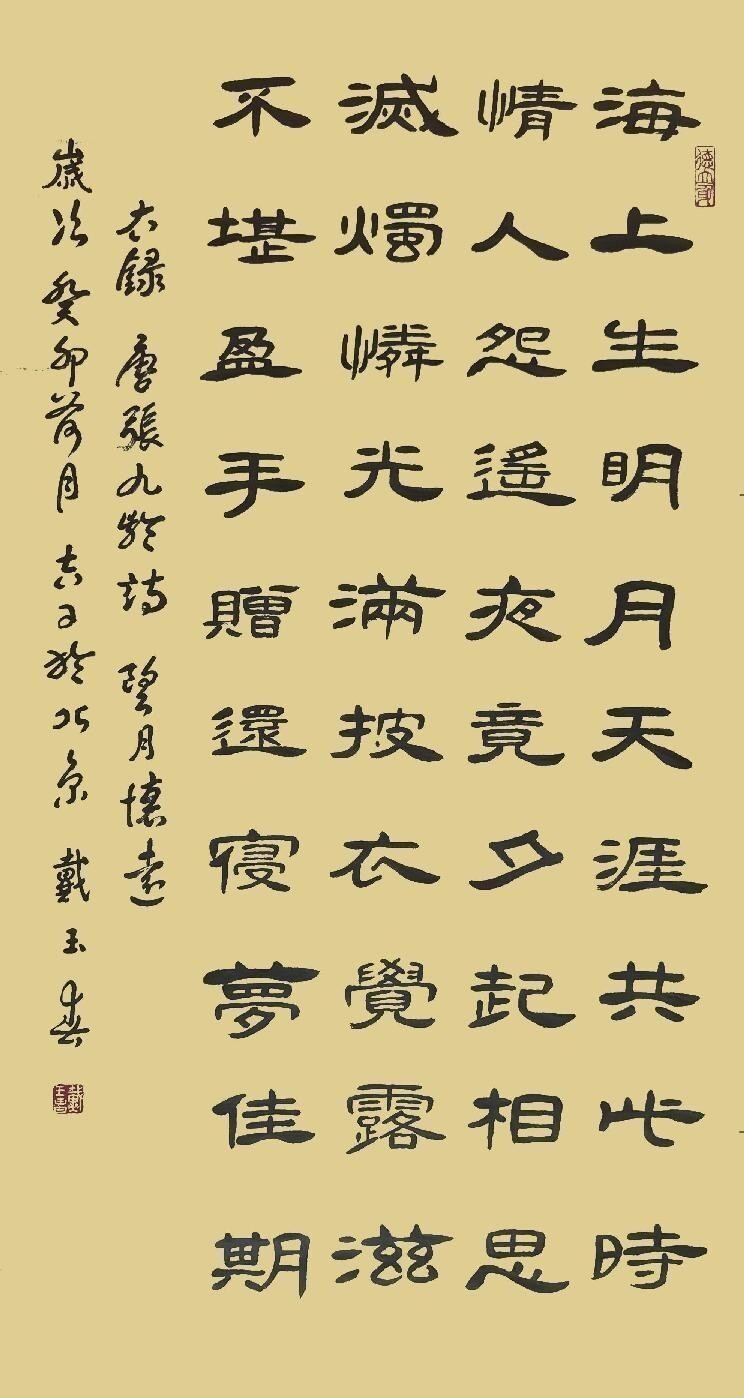 海上生明月天涯共此時
情人怨遙夜竟夕起相思
滅燭憐光滿披衣覺露滋
不堪盈手贈還寝夢佳期
右録唐張九齡詩望月懷遠
歲次癸卯荷月吉日於北京戴玉春